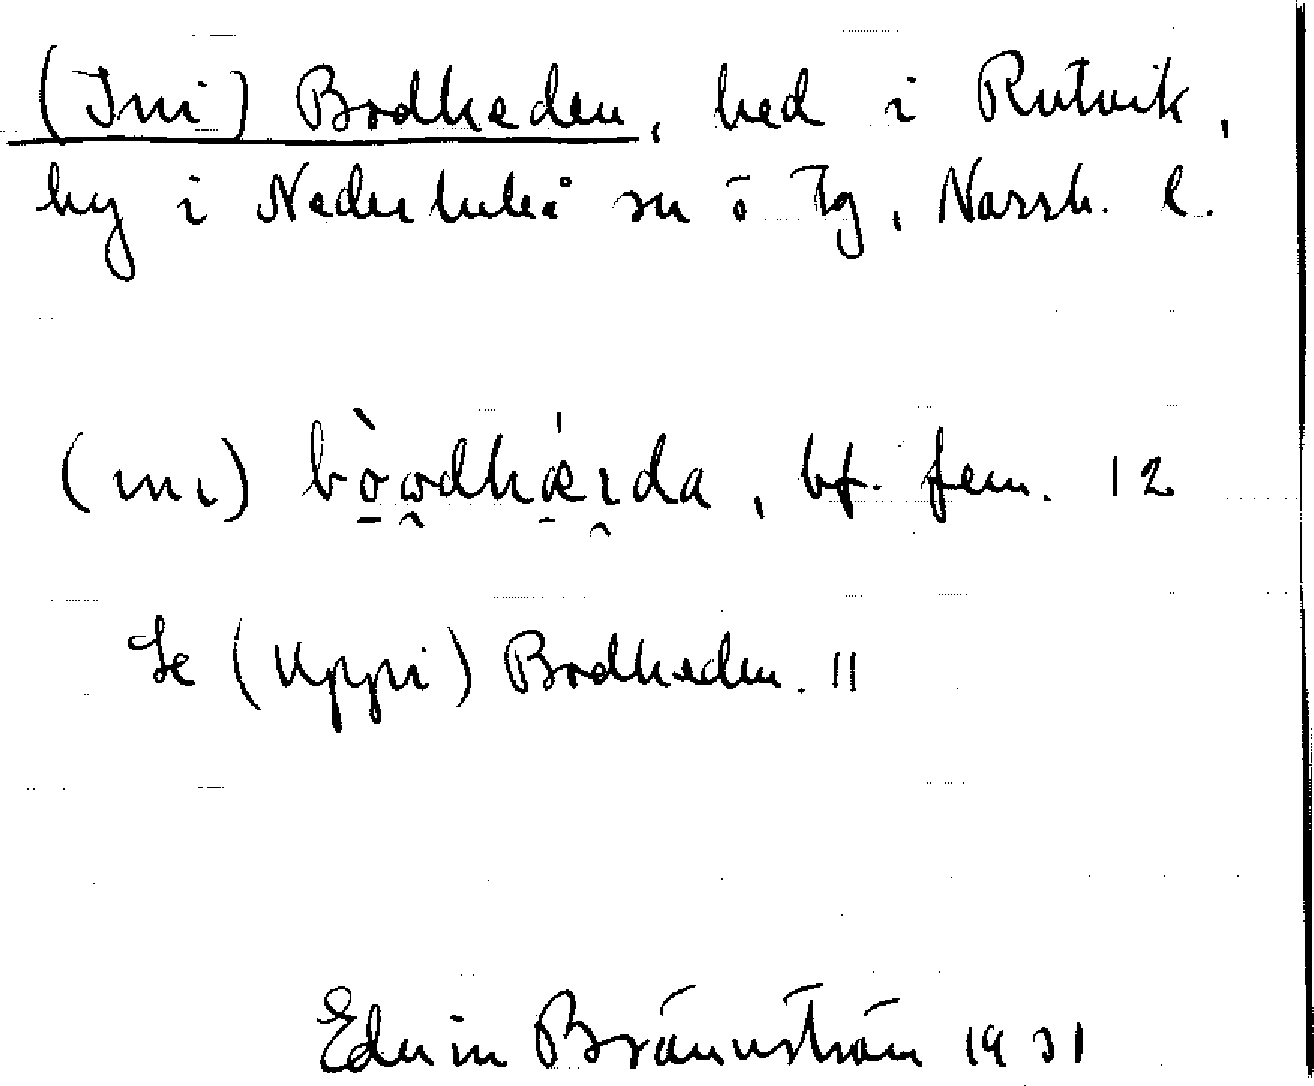 (Ini) Bodheden, hed i Rutvik,
by i Nederluleå sn ö Tg, Norrb. l.
(ini) bòwdhæ̀ɪda, bf. fem. 12
Se (Uppi) Bodheden. 11
Edvin Brännström 1931